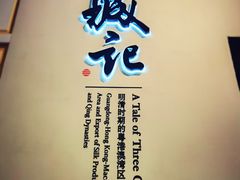 城记
A Tale of Three C
明清时期的粤港澳湾区
Guangdong-Hong Kong-Mac
Area and Export of Silk Produ
and Qing Dynasties